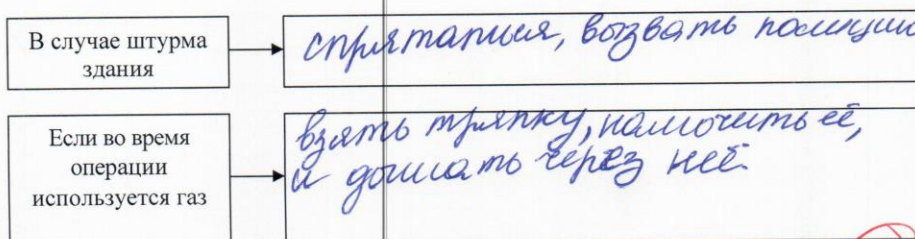 В случае штурма
здания
спрятаться, вызвать полицию
Если во время
операции
используется газ
взять тряпку, намочить её,
и дышать через неё.